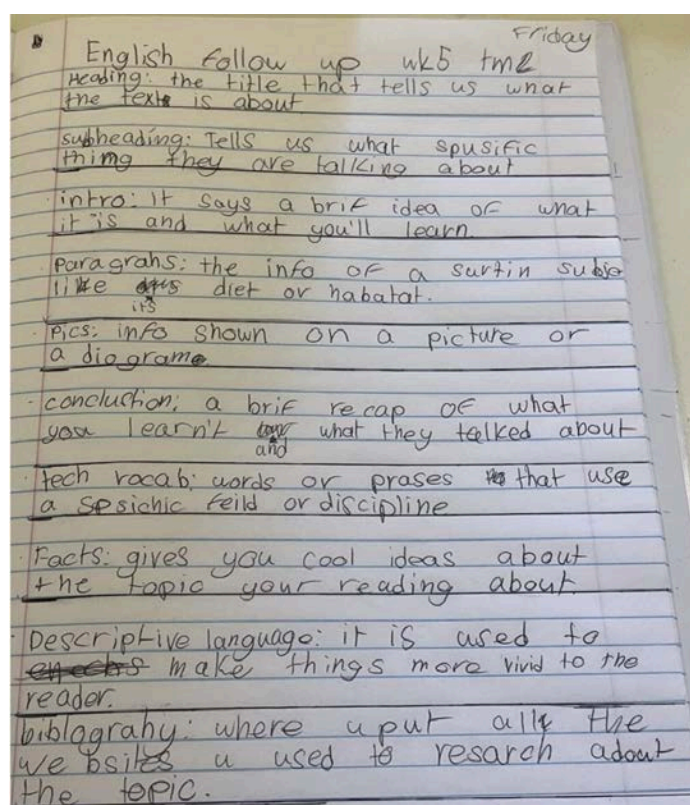 Friday
English follow up wk5 tm2
Heading: the title that tells us what
the text is about
subheading: Tells us what spusific
thing they are talking about
intro: It says a brif idea of what
it is and what you'll learn.
paragrahs: the info of a surtin subje
like its diet or habatat.
Pics: info shown on a picture or
a diograme.
concluction: a brif recap of what
you learn't and what they talked about
tech vocab: words or prases that use
a spsichic feild or discipline
Facts: gives you cool ideas about
the topic your reading about.
Descriptive language: it is used to
make things more vivid to the
reader.
biblograhy: where u put all the
websites u used to resarch adout
the topic.